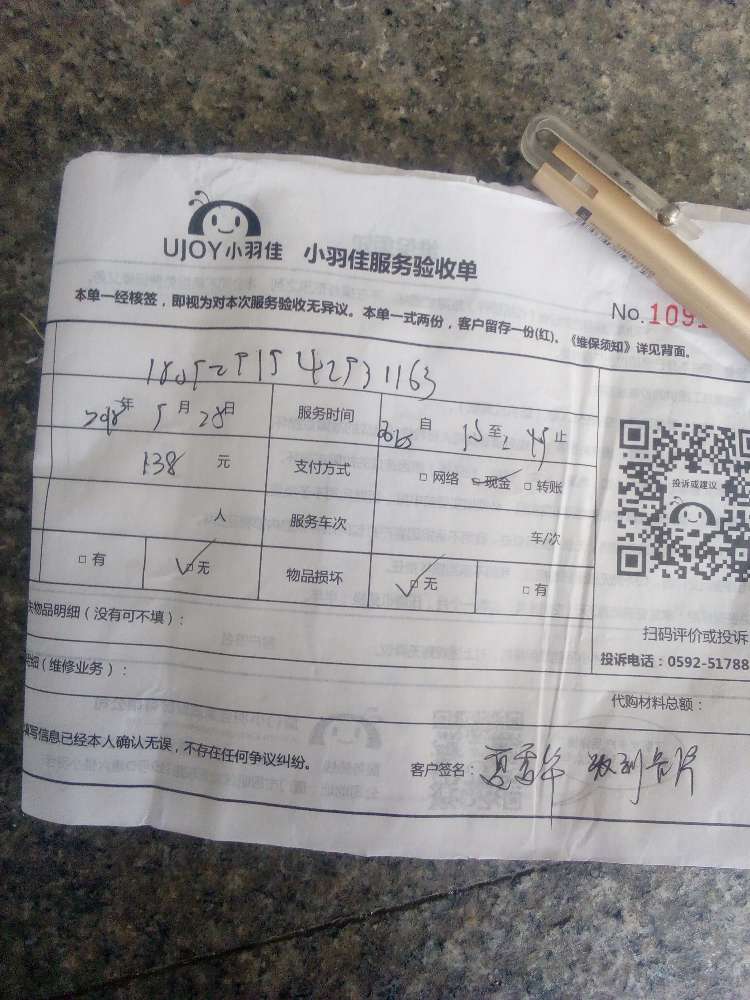 UJOY小羽佳 小羽佳服务验收单
No.1091
本单一经核签，即视为对本次服务验收无异议。本单一式两份，客户留存一份(红)。《维保须知》详见背面。
年 5 月 28日 服务时间 自 至 止
138 元 支付方式 □ 网络 □ 现金 □ 转账
人 服务车次 车/次
□ 有 □ 无 物品损坏 □ 无 □ 有
投诉或建议
物品明细（没有可不填）：
扫码评价或投诉
细（维修业务）：
投诉电话：0592-51788
代购材料总额：
填写信息已经本人确认无误，不存在任何争议纠纷。
客户签名： 收到卡片